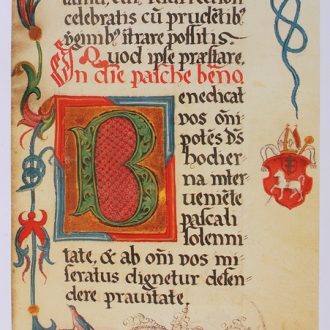 celebratis cū prudētibꝰ
pginibꝰ ītrare possitis.
Quod ipse præstare.
In die pasche bene
Benedicat
vos oм̄i
potēs dс̄
hodier
na ınter
veniēte
pascali
solenni
tate, & ab om̄i vos mi
seratus dignetur defen
dere prauitate.